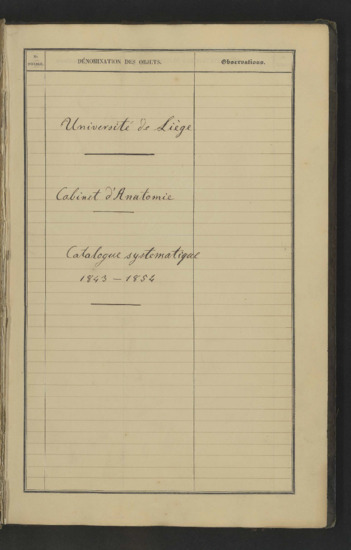 DÉNOMINATION DES OBJETS.
Observations.
Université de Liège
Cabinet d'Anatomie
Catalogue systématique
1843 – 1854